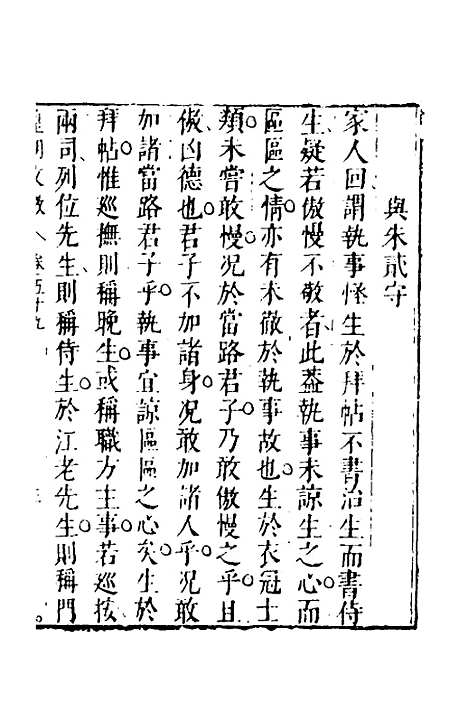 與朱貳守
家人回謂執事怪生於拜帖不書治生而書侍
生疑若傲慢不敬者此葢執事未諒生之心而
區區之情亦有未徹於執事故也生於衣冠士
類未嘗敢慢况於當路君子乃敢傲慢之乎且
傲凶德也君子不加諸身况敢加諸人乎况敢
加諸當路君子乎執事宜諒區區之心矣生於
拜帖惟巡撫則稱晚生或稱職方主事若巡按
兩司列位先生則稱侍生於江老先生則稱門
皇明文徵 卷五十九